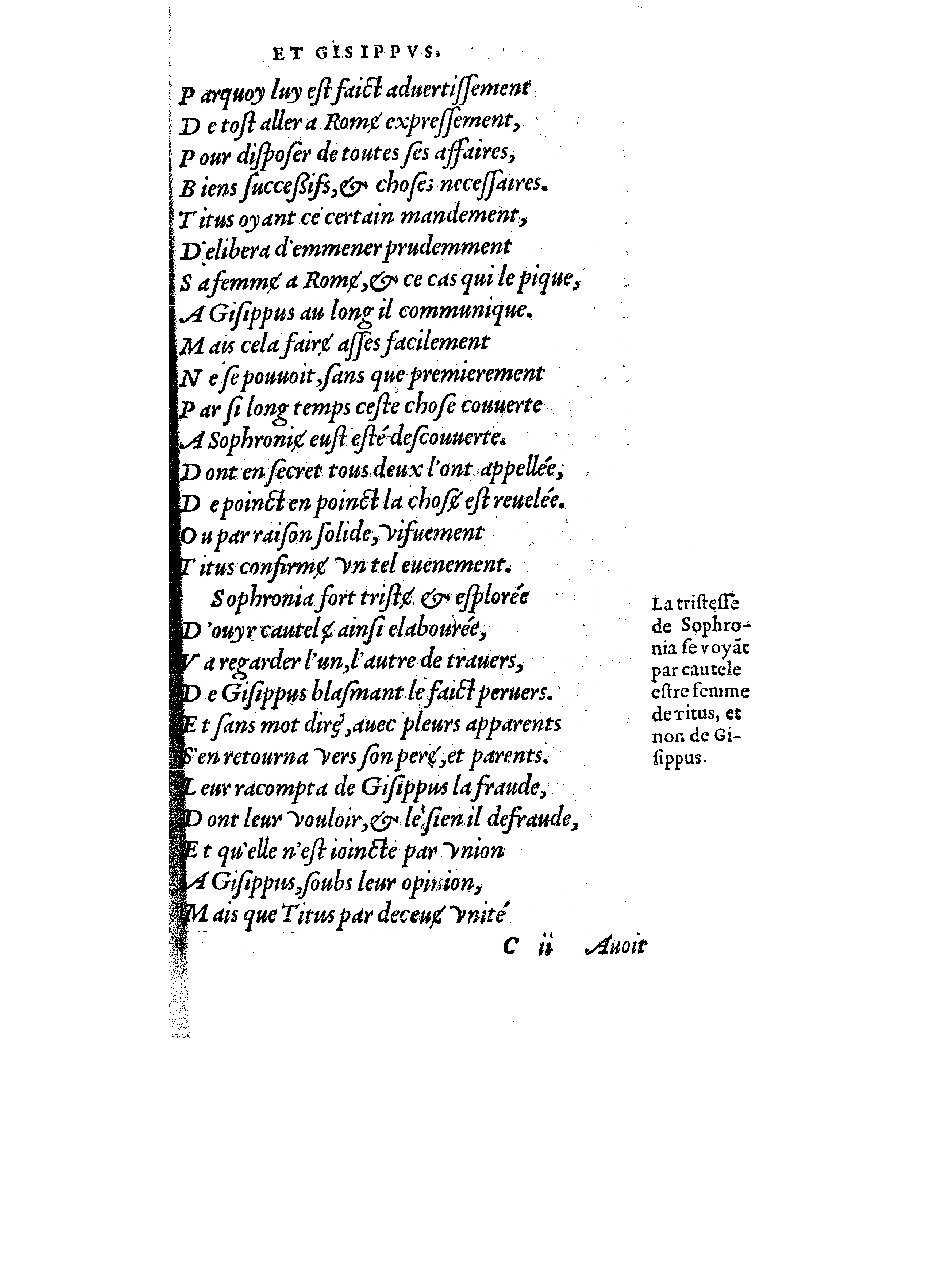 ET GISIPPVS.
Parquoy luy eſt faict aduertiſſement
De toſt aller a Romɇ expreſſement,
Pour diſpoſer de toutes ſes affaires,
Biens ſucceßifs, & choſes neceſſaires.
Titus oyant ce certain mandement,
Delibera d'emmener prudemment
Sa femmɇ a Romɇ, & ce cas qui le pique,
A Giſippus au long il communique.
Mais cela fairɇ aſſes facilement
Ne ſe pouuoit, ſans que premierement
Par ſi long temps ceſte choſe couuerte
A Sophroniɇ euſt eſté deſcouuerte.
Dont en ſecret tous deux l'ont appellée,
De poinct en poinct la choſɇ eſt reuelée.
Ou par raiſon ſolide, viſuement
Titus confirmɇ vn tel euenement.
Sophronia fort triſtɇ & eſplorée
D'ouyr cautelɇ ainſi elabourée,
Va regarder l'un, l'autre de trauers,
De Giſippus blaſmant le faict peruers.
Et ſans mot dirɇ, auec pleurs apparents
S'en retourna vers ſon perɇ, et parents.
Leur racompta de Giſippus la fraude,
Dont leur vouloir, & le ſien il defraude,
Et qu'elle n'eſt ioincte par vnion
A Giſippus, ſoubs leur opinion,
Mais que Titus par deceuɇ vnité
C ii Auoit
La triſteſſe
de Sophro-
nia ſe voyãt
par cautele
eſtre femme
de Titus, et
non de Gi-
ſippus.